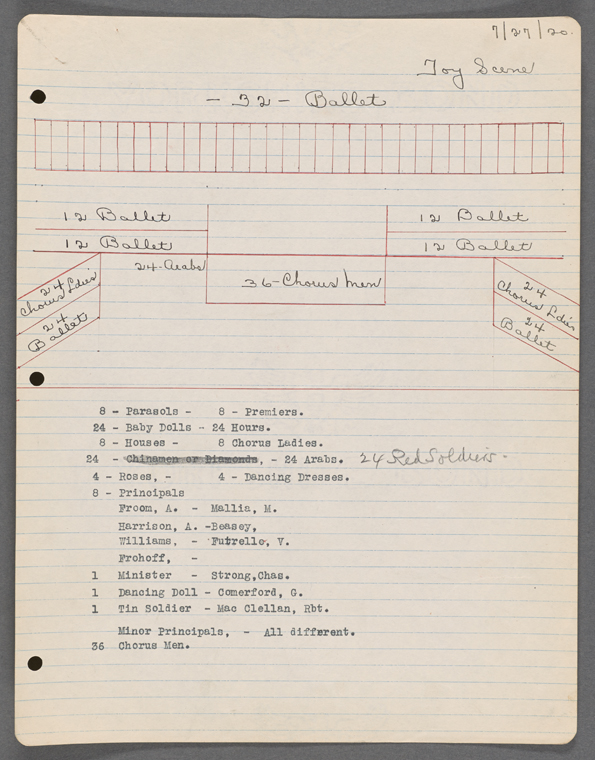 7/27/20.
Toy Scene
- 32 - Ballet
12 Ballet
12 Ballet
12 Ballet
12 Ballet
24-Arabs
36-Chorus Men
24
Chorus Ldies
24
Ballet
24
Chorus Ldies
24
Ballet
8 - Parasols - 8 - Premiers.
24 - Baby Dolls - 24 Hours.
8 - Houses - 8 Chorus Ladies.
24 - Chinamen or Diamonds, - 24 Arabs. 24 Red Soldiers -
4 - Roses, - 4 - Dancing Dresses.
8 - Principals
Froom, A. - Mallia, M.
Harrison, A. -Beasey,
Williams, - Futrelle, V.
Frohoff, -
1 Minister - Strong,Chas.
1 Dancing Doll - Comerford, G.
1 Tin Soldier - Mac Clellan, Rbt.
Minor Principals, - All different.
36 Chorus Men.